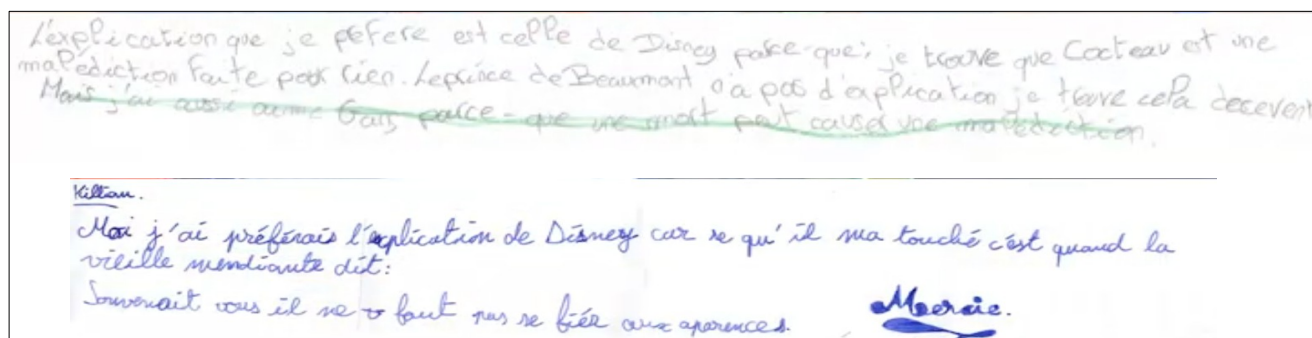 L'explication que je péfere est celle de Disney parce-que; je trouve que Cocteau est une
malédiction faite pour rien. Leprince de Beaumont n'a pas d'explication je trouve cela decevent
Mais j'ai aussi aimé Gans parce-que une mort peut causer une malédiction.
Killian.
Moi j'ai préférais l'explication de Disney car se qu'il ma touché c'est quand la
vieille mendiante dit:
Souvenait vous il ne faut pas se fiér aux aparences.